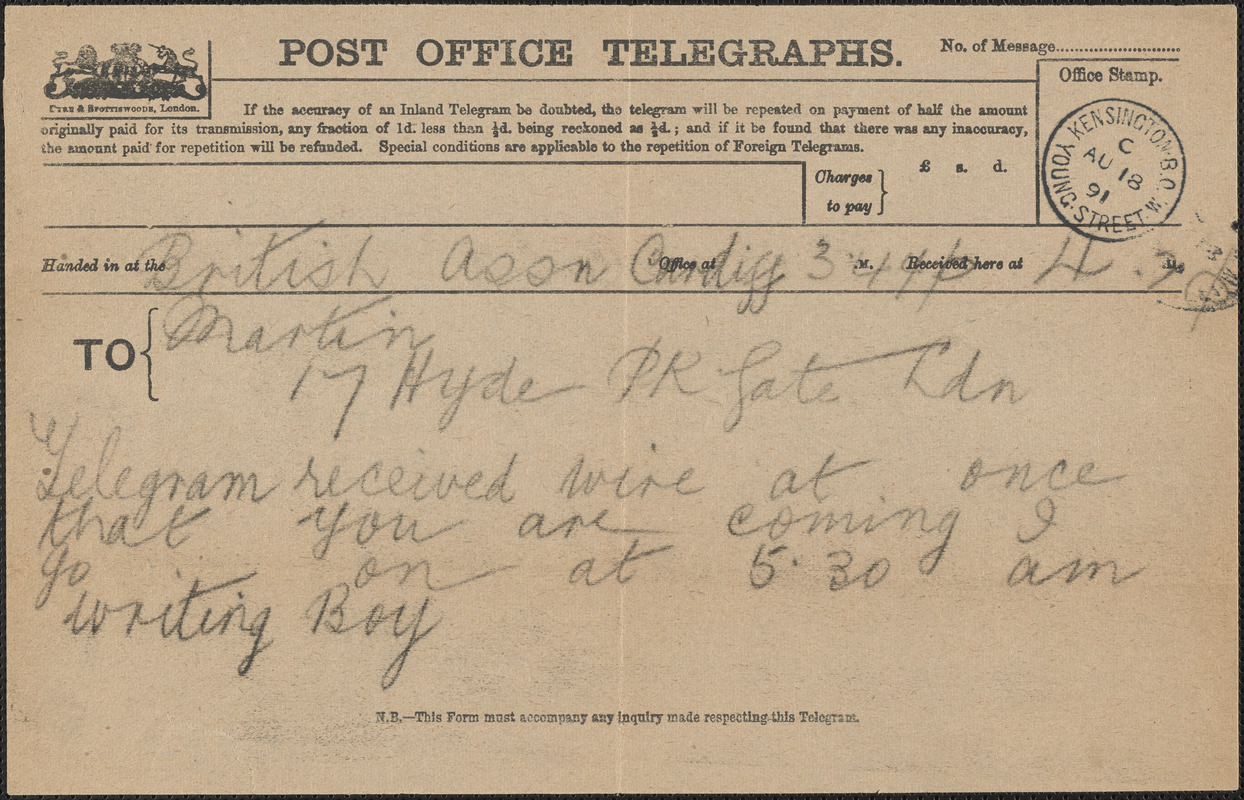 POST OFFICE TELEGRAPHS.
No. of Message
Office Stamp.
EYRE & SPOTTISWOODE, LONDON.
If the accuracy of an Inland Telegram be doubted, the telegram will be repeated on payment of half the amount
originally paid for its transmission, any fraction of 1d. less than ½d. being reckoned as ½d.; and if it be found that there was any inaccuracy,
the amount paid for repetition will be refunded. Special conditions are applicable to the repetition of Foreign Telegrams.
Charges to pay
£ s. d.
KENSINGTON B.O. YOUNG STREET W.
C
AU 18
91
Handed in at the British Assn Office at Cardiff M. Received here at
TO Martin
17 Hyde PK Gate Ldn
Telegram received wire at once
that you are coming I
go on at 5.30 am
writing Boy
N.B.—This Form must accompany any inquiry made respecting this Telegram.